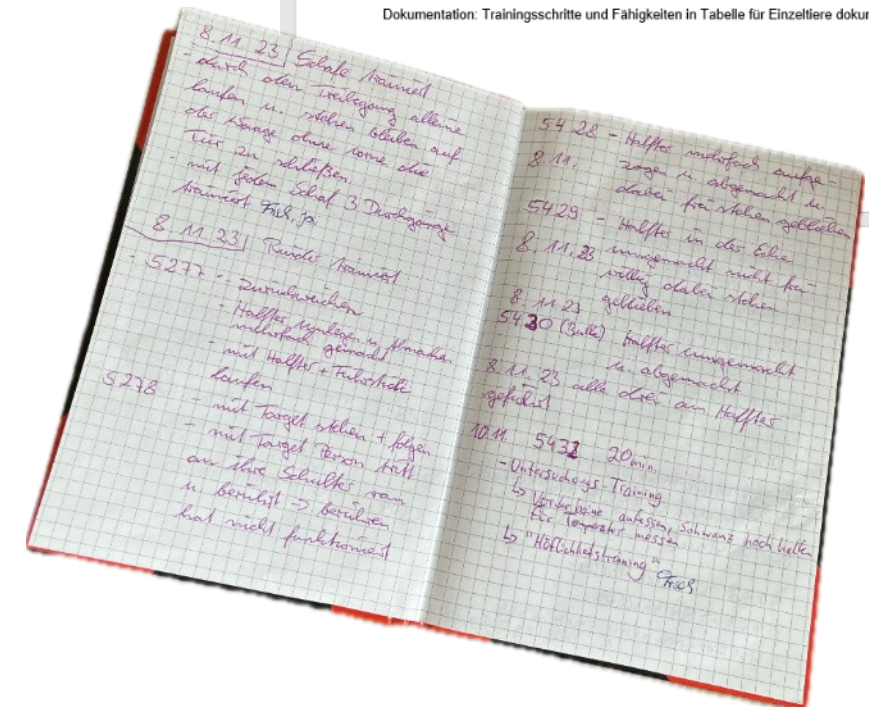 Dokumentation: Trainingsschritte und Fähigkeiten in Tabelle für Einzeltiere doku
8. 11. 23 Schafe trainiert
- durch den Treibegang alleine
laufen u. stehen bleiben auf
der Waage ohne vorne die
Tür zu schließen.
- mit jedem Schaf 3 Durchgänge
trainiert
8. 11. 23 Rinder trainiert
- 5277 - zurückweichen
- Halfter umlegen u. Abmachen
mehrfach gemacht
- mit Halfter + Führstrick
laufen
5278 - mit Target stehen + folgen
- mit Target Person tritt
an ihre Schulter ran
u. berührt => berühren
hat nicht funktioniert
5428 - Halfter mehrfach aufge-
8. 11. zogen u. abgemacht u.
dabei frei stehen geblieben
5429 - Halfter in der Ecke
8. 11. 23 umgemacht nicht frei-
willig dabei stehen
8. 11. 23 geblieben
5430 (Bulle) Halfter umgemacht
u. abgemacht
8. 11. 23 alle drei am Halfter
geführt
10.11. 5431 20 min.
- Untersuchungs-Training
↳ Vorderbeine anfassen, Schwanz hoch halten
für Temperatur messen
↳ "Höflichkeitstraining"